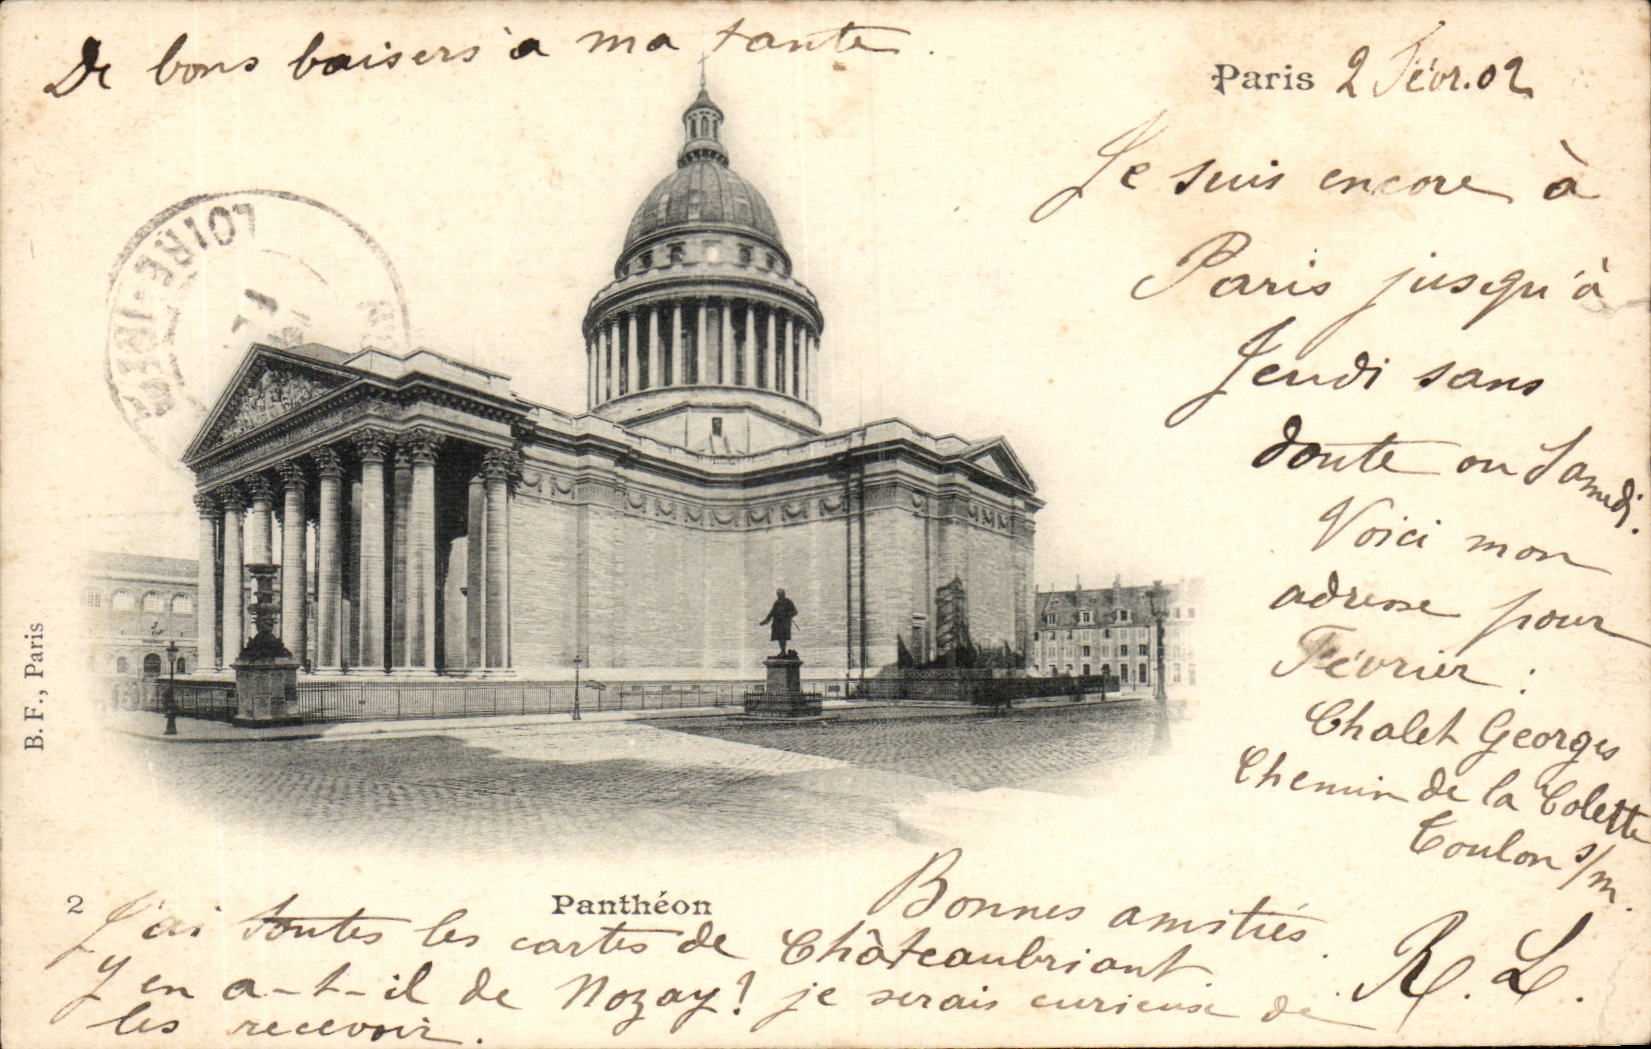 De bons baisers à ma tante.
Paris 2 Févr. 02
Je suis encore à
Paris jusqu'à
Jeudi sans
doute ou Samedi.
Voici mon
adresse pour
Février :
Chalet Georges
Chemin de la Colette
Toulon s/m.
LOIRE-INFRE
B. F., Paris
2
Panthéon
Bonnes amitiés.
R. L.
J'ai toutes les cartes de Châteaubriant
Y en a-t-il de Nozay! je serais curieuse de
les recevoir.